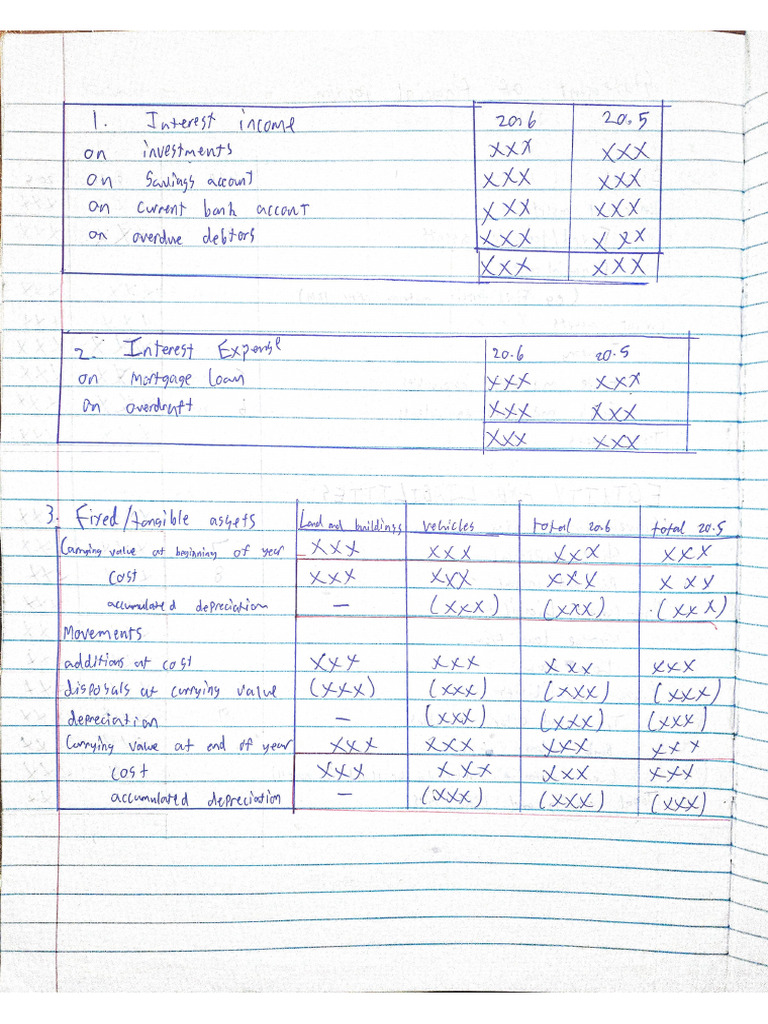 1. Interest income 20.6 20.5
on investments XXX XXX
on Savings account XXX XXX
on current bank account XXX XXX
on overdue debtors XXX XXX
XXX XXX
2. Interest Expense 20.6 20.5
on Mortgage loan XXX XXX
on overdraft XXX XXX
XXX XXX
3. Fixed/tangible assets Land and buildings vehicles total 20.6 total 20.5
Carrying value at beginning of year XXX XXX XXX XXX
cost XXX XXX XXX XXX
accumulated depreciation – (XXX) (XXX) (XXX)
Movements
additions at cost XXX XXX XXX XXX
disposals at carrying value (XXX) (XXX) (XXX) (XXX)
depreciation – (XXX) (XXX) (XXX)
Carrying value at end of year XXX XXX XXX XXX
cost XXX XXX XXX XXX
accumulated depreciation – (XXX) (XXX) (XXX)